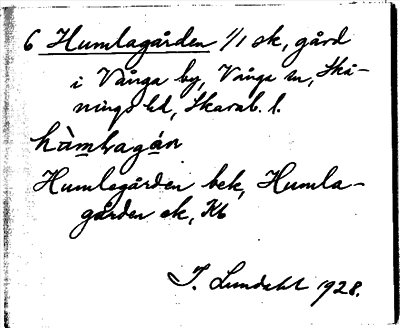 6 Humlagården 1/1 sk, gård
i Vånga by, Vånga sn, Skå-
nings hd, Skarab. l.
hò̀mlragán
Humlegården bek, Humla-
gården ek, Kb
J. Lundahl 1928.